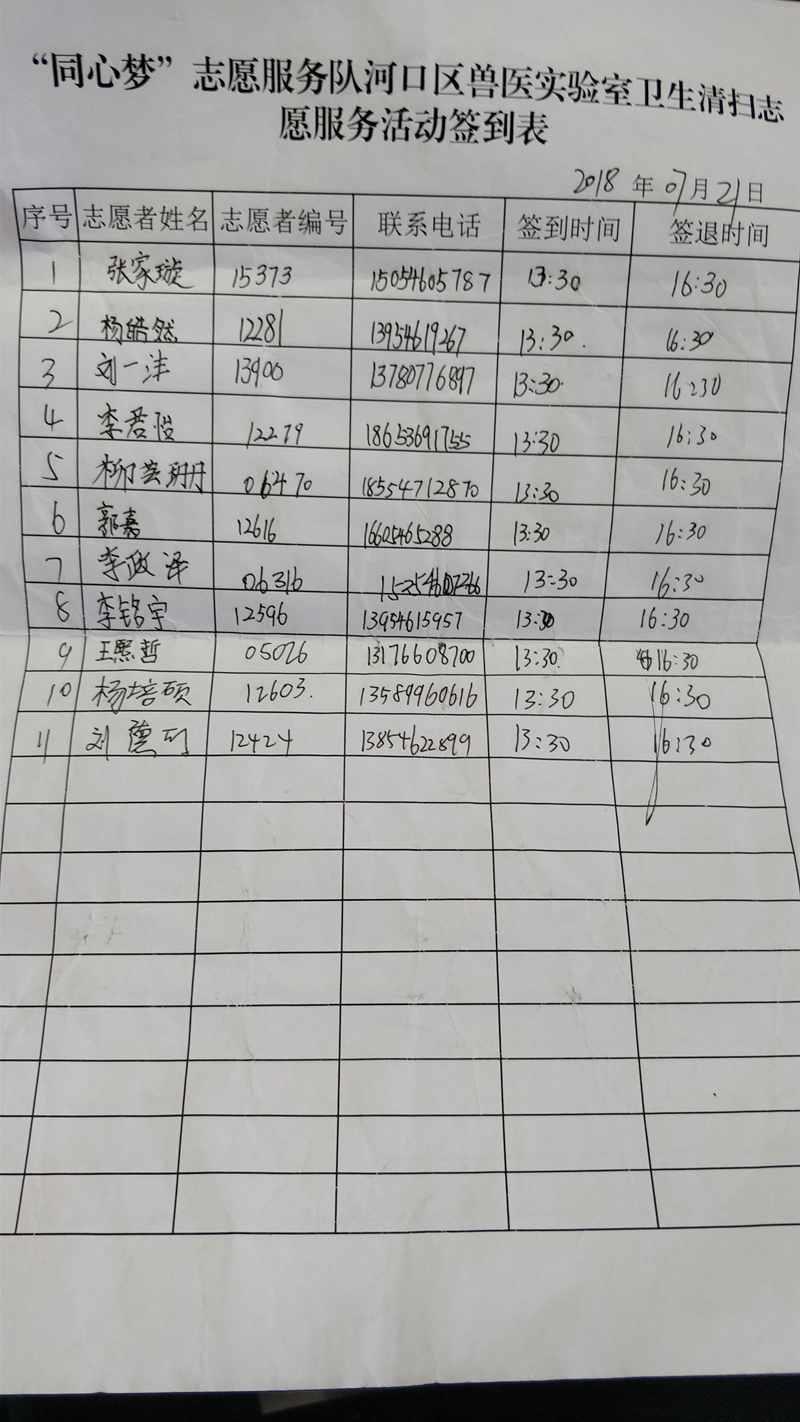 “同心梦”志愿服务队河口区兽医实验室卫生清扫志
愿服务活动签到表
2018 年 07 月 21 日
序号 志愿者姓名 志愿者编号 联系电话 签到时间 签退时间
1 张家璇 15373 15054605787 13:30 16:30
2 杨皓然 12281 13954619267 13:30 16:30
3 刘一沣 13900 13780776897 13:30 16:30
4 李君恺 12279 18653691755 13:30 16:30
5 柳芸玥 06470 18554712870 13:30 16:30
6 郭嘉 12616 16605465288 13:30 16:30
7 李政泽 06316 13:30 16:30
8 李铭宇 12596 13954615957 13:30 16:30
9 王熙哲 05026 13176608700 13:30 16:30
10 杨培硕 12603. 13589960616 13:30 16:30
11 刘 12424 13854622899 13:30 16:30